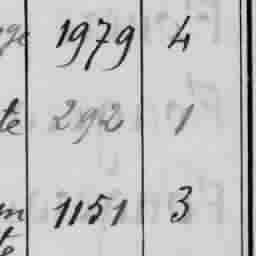 ge 1979 4
te 292 1
m 1151 3
te